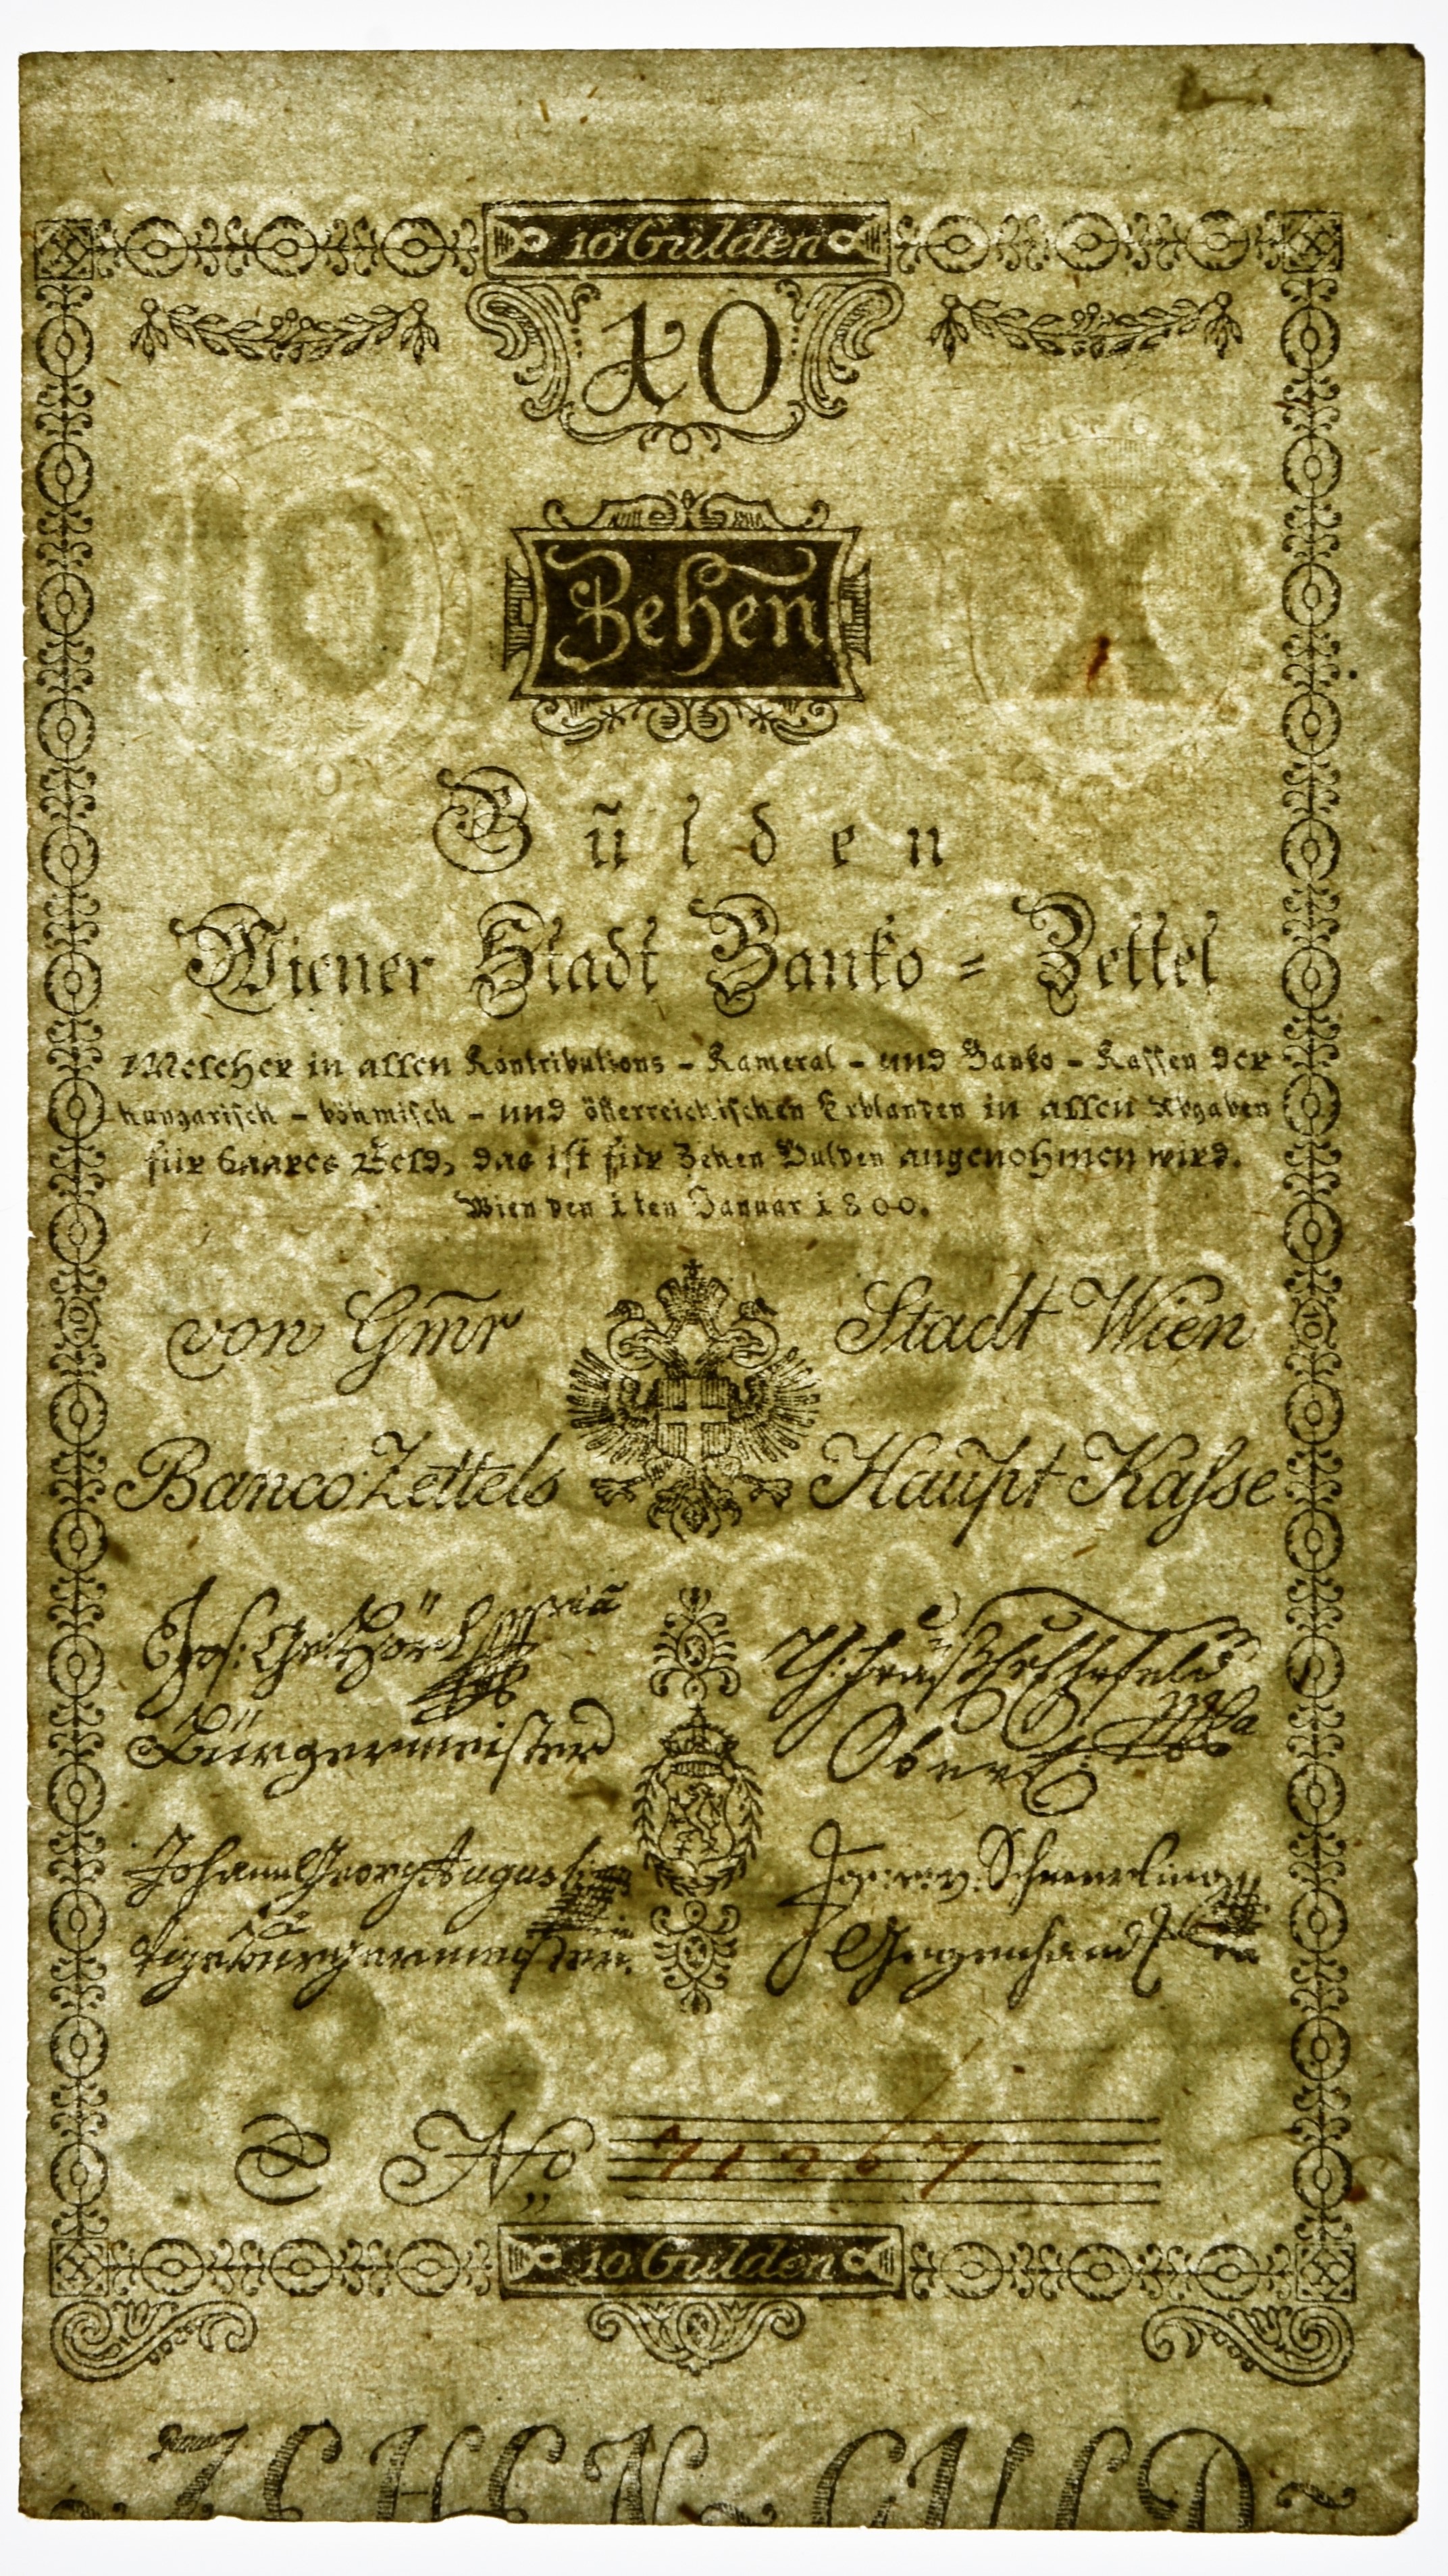 10 Gulden
10
10 X
Zehen
Gulden
Wiener Stadt Banko = Zettel
Welcher in allen Kontributions - Kameral - und Banko - Kassen der
hungarisch - böhmisch - und österreichischen Erblanden in allen Abgaben
für baares Geld, das ist für Zehen Gulden angenohmen wird.
Wien den 1ten Januar 1800.
von Gm̄r Stadt Wien
Banco Zettels Haupt Kasse
Bürgermeister
Johann Georg Augusti
v. Schmerling
No 71267
10 Gulden
ZEHEN GULD